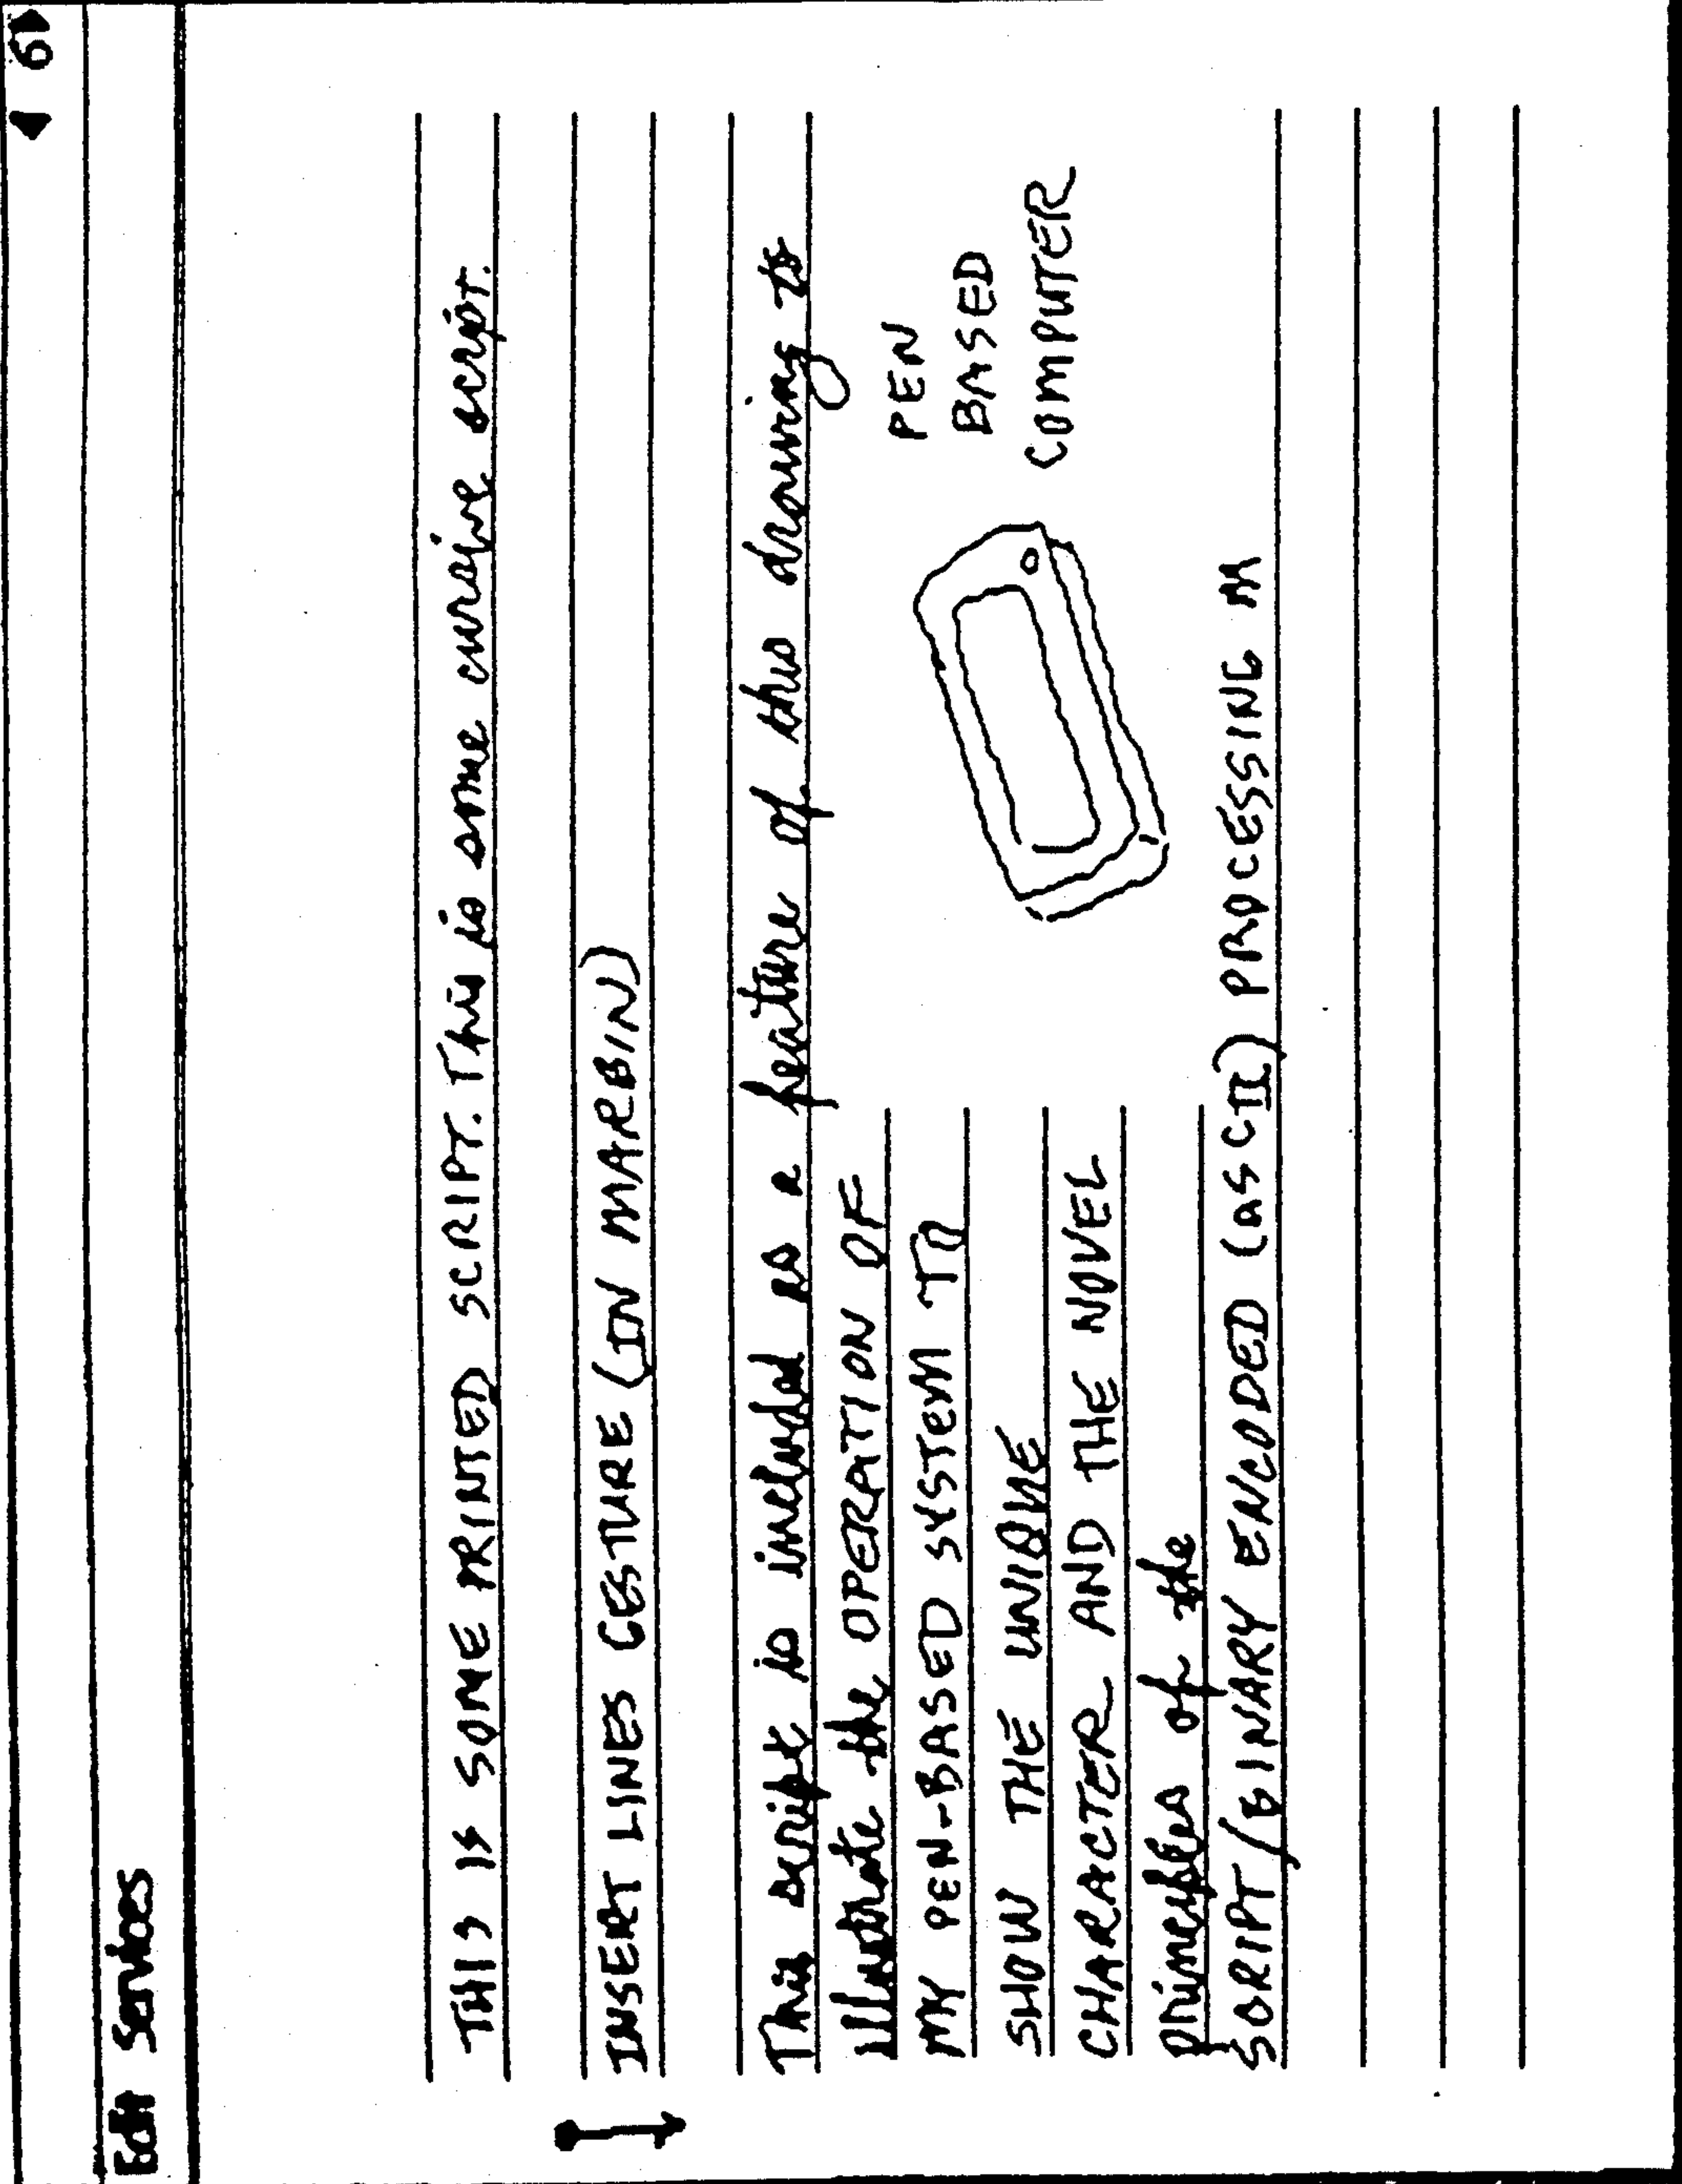 6
Edit Services
THIS IS SOME PRINTED SCRIPT. This is some cursive script.
INSERT LINES GESTURE (IN MARBIN)
This script is included as a feature of this drawing to
illustrate the OPERATION OF
MY PEN-BASED SYSTEM TO
SHOW THE UNIQUE
CHARACTER AND THE NOVEL
principles of the
SCRIPT/BINARY ENCODED (ASCII) PROCESSING M
PEN
BASED
COMPUTER